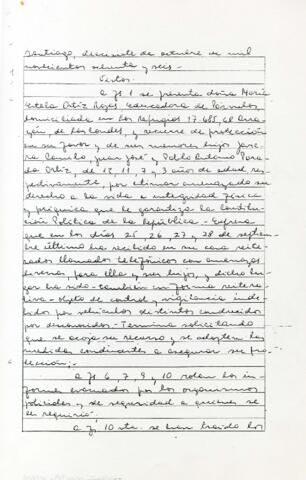 Santiago, diecisiete de octubre de mil
novecientos ochenta y seis.
Vistos:
A fs 1 se presenta doña María
Estela Ortiz Rojas, Educadora de Párvulos,
domiciliada en Los Refugios 17.685, El Arra-
yán, de Las Condes, y recurre de protección
en su favor y de sus menores hijos Javie-
ra, Camilo, Juan José y Pablo Antonio Para-
da Ortiz, de 13, 11, 7 y 3 años de edad res-
pectivamente, por estimar amenazado su
derecho a la vida e integridad física
y psíquica que le garantiza la Constitu-
ción Política de la República. Expresa
que en los días 25, 26, 27 y 28 de septiem-
bre último ha recibido en su casa reite-
rados llamados telefónicos con amenazas
diversas para ella y sus hijos, y dicho ho-
gar ha sido también en forma reitera-
tiva objeto de control y vigilancia inde-
bidos por vehículos distintos conducidos
por desconocidos. Termina solicitando
que se acoja su recurso y se adopten las
medidas conducentes a asegurar su pro-
tección;
A fs 6, 7, 9, 10 rolan los in-
formes evacuados por los organismos
policiales y de seguridad a quienes se
les requirió;
A fs 10 vta. se han traído los